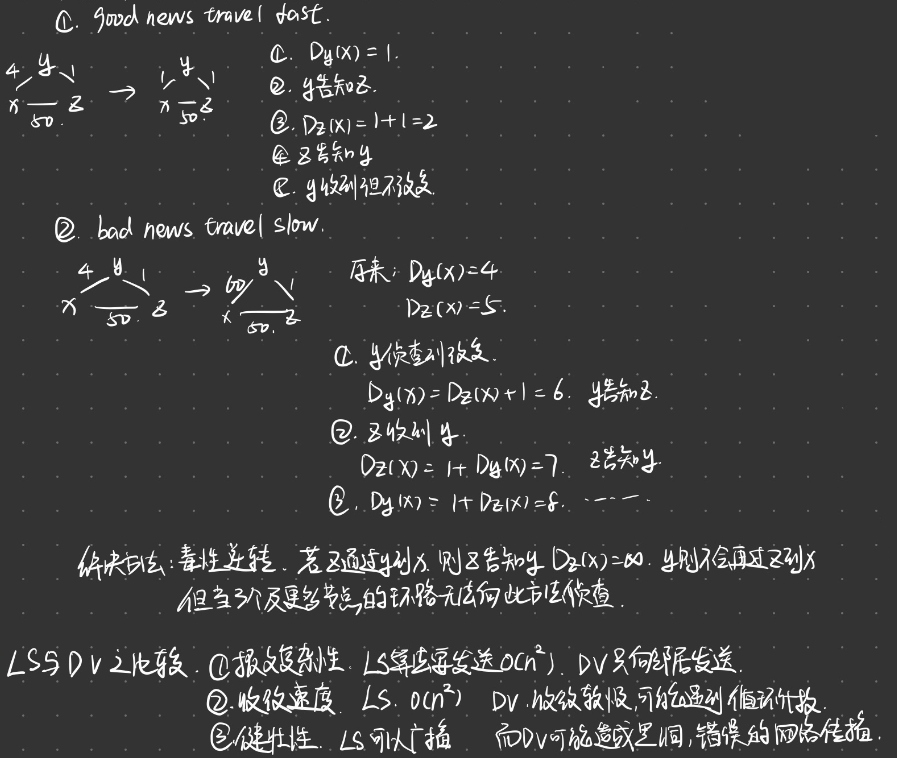 ①. good news travel fast.
4 y 1
x 50. z
→
1 y 1
x 50. z
①. Dy(x) = 1.
②. y告知z.
③. Dz(x) = 1+1=2
④ z告知y
⑤. y收到但不改变.
②. bad news travel slow.
4 y 1
x 50. z
→
60 y 1
x 50. z
原来: Dy(x)=4
Dz(x)=5.
①. y侦查到改变.
Dy(x) = Dz(x)+1 = 6. y告知z.
②. z收到y.
Dz(x) = 1+ Dy(x)=7. z告知y.
③. Dy(x) = 1+ Dz(x)=8. ......
解决方法: 毒性逆转. 若z通过y到x, 则z告知y Dz(x)=∞. y则不会再过z到x
但当3个及更多节点的环路无法向此方法侦查.
LS与DV之比较. ①报文复杂性. LS算法要发送O(n²). DV只向邻居发送.
②. 收敛速度. LS. O(n²) DV. 收敛较慢, 可能遇到循环计数.
③健壮性. LS可以广播 而DV可能造成黑洞, 错误的网络传播.